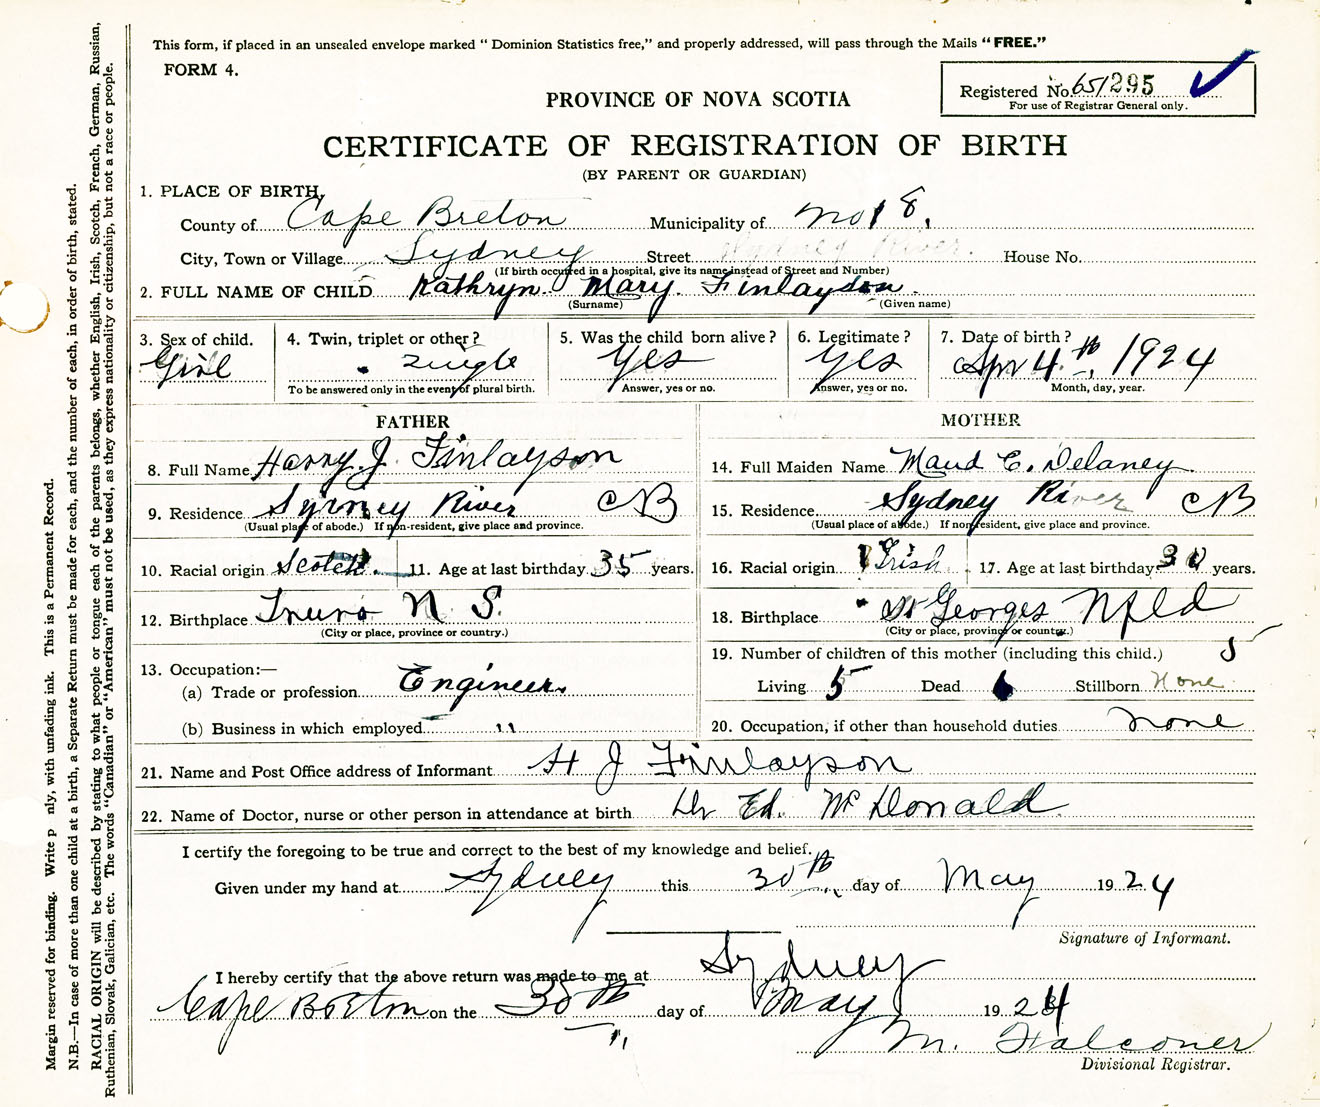 This form, if placed in an unsealed envelope marked "Dominion Statistics free," and properly addressed, will pass through the Mails "FREE."
FORM 4.
Registered No. 651295
For use of Registrar General only.
PROVINCE OF NOVA SCOTIA
CERTIFICATE OF REGISTRATION OF BIRTH
(BY PARENT OR GUARDIAN)
1. PLACE OF BIRTH,
County of Cape Breton Municipality of No 18.
City, Town or Village Sydney Street Sydney River. House No.
(If birth occurred in a hospital, give its name instead of Street and Number)
2. FULL NAME OF CHILD Kathryn. Mary. Finlayson.
(Surname) (Given name)
3. Sex of child. 4. Twin, triplet or other? 5. Was the child born alive? 6. Legitimate? 7. Date of birth?
Girl Single Yes Yes Apr 4th, 1924
To be answered only in the event of plural birth. Answer, yes or no. Answer, yes or no. Month, day, year.
FATHER MOTHER
8. Full Name Harry. J. Finlayson 14. Full Maiden Name Maud C. Delaney.
9. Residence Sydney River CB 15. Residence Sydney River CB
(Usual place of abode.) If non-resident, give place and province. (Usual place of abode.) If non-resident, give place and province.
10. Racial origin Scotch 11. Age at last birthday 35 years. 16. Racial origin Irish 17. Age at last birthday 30 years.
12. Birthplace Truro N. S. 18. Birthplace St Georges Nfld
(City or place, province or country.) (City or place, province or country.)
13. Occupation:— 19. Number of children of this mother (including this child.) 5
(a) Trade or profession Engineer. Living 5 Dead Stillborn None
(b) Business in which employed " 20. Occupation, if other than household duties none
21. Name and Post Office address of Informant H J Finlayson
22. Name of Doctor, nurse or other person in attendance at birth Dr Ed. McDonald
I certify the foregoing to be true and correct to the best of my knowledge and belief.
Given under my hand at Sydney this 30th day of May 1924
Signature of Informant.
I hereby certify that the above return was made to me at Sydney
Cape Breton on the 30th day of May 1924
M. Falconer
Divisional Registrar.
Margin reserved for binding. Write p nly, with unfading ink. This is a Permanent Record.
N.B.—In case of more than one child at a birth, a Separate Return must be made for each, and the number of each, in order of birth, stated.
RACIAL ORIGIN will be described by stating to what people or tongue each of the parents belongs, whether English, Irish, Scotch, French, German, Russian,
Ruthenian, Slovak, Galician, etc. The words "Canadian" or "American" must not be used, as they express nationality or citizenship, but not a race or people.